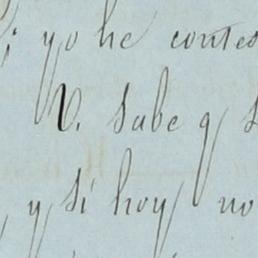 ; yo he contes
V. Sabe q s
, y si hoy no